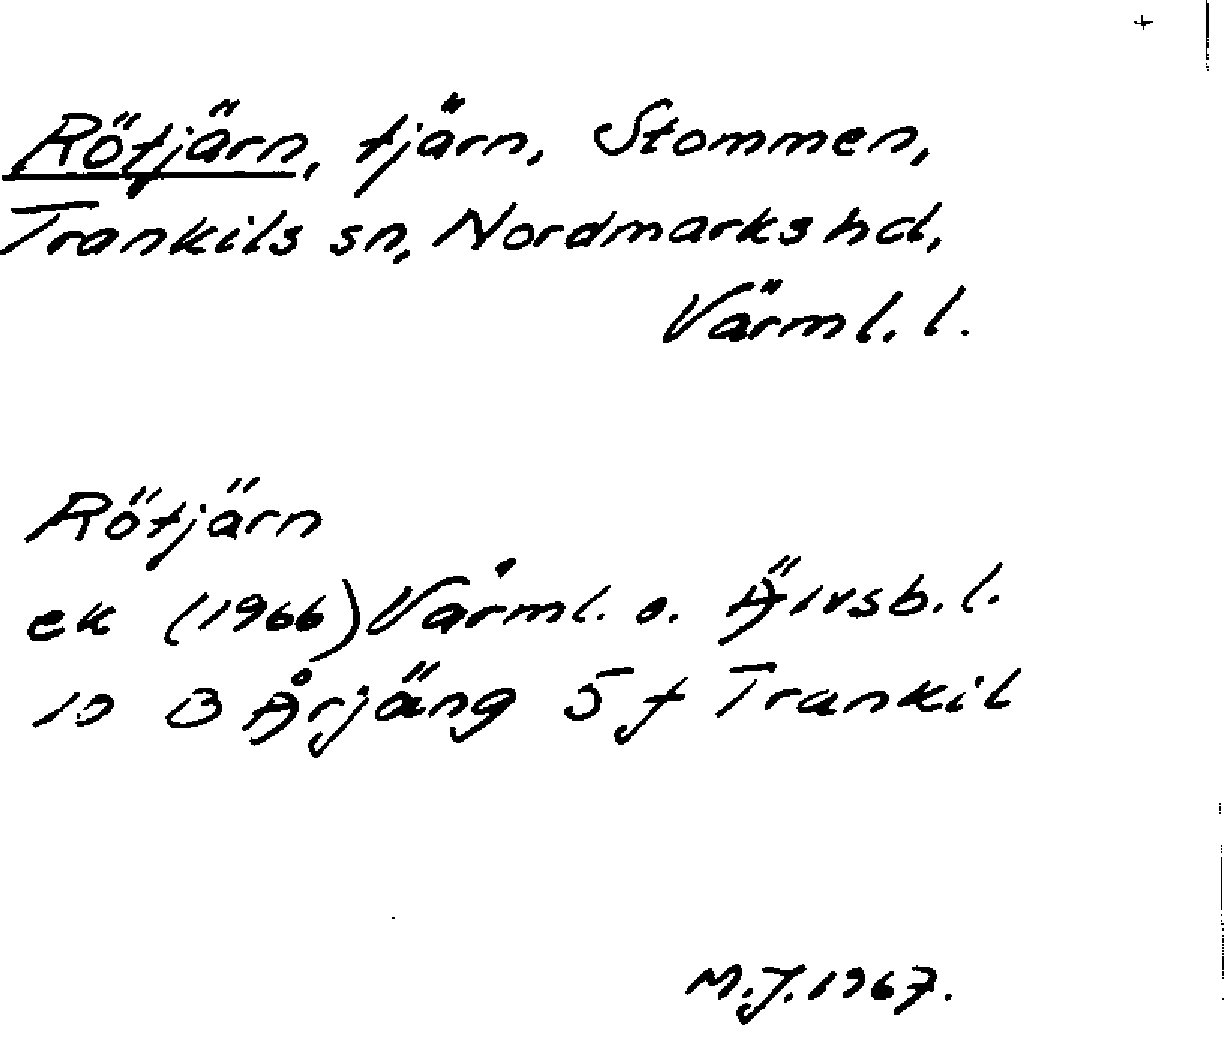 +
Rötjärn, tjärn, Stommen,
Trankils sn, Nordmarks hd,
Värml. l.
Rötjärn
ek (1966) Värml. o. Älvsb. l.
10 B Årjäng 5 f Trankil
M.J. 1967.